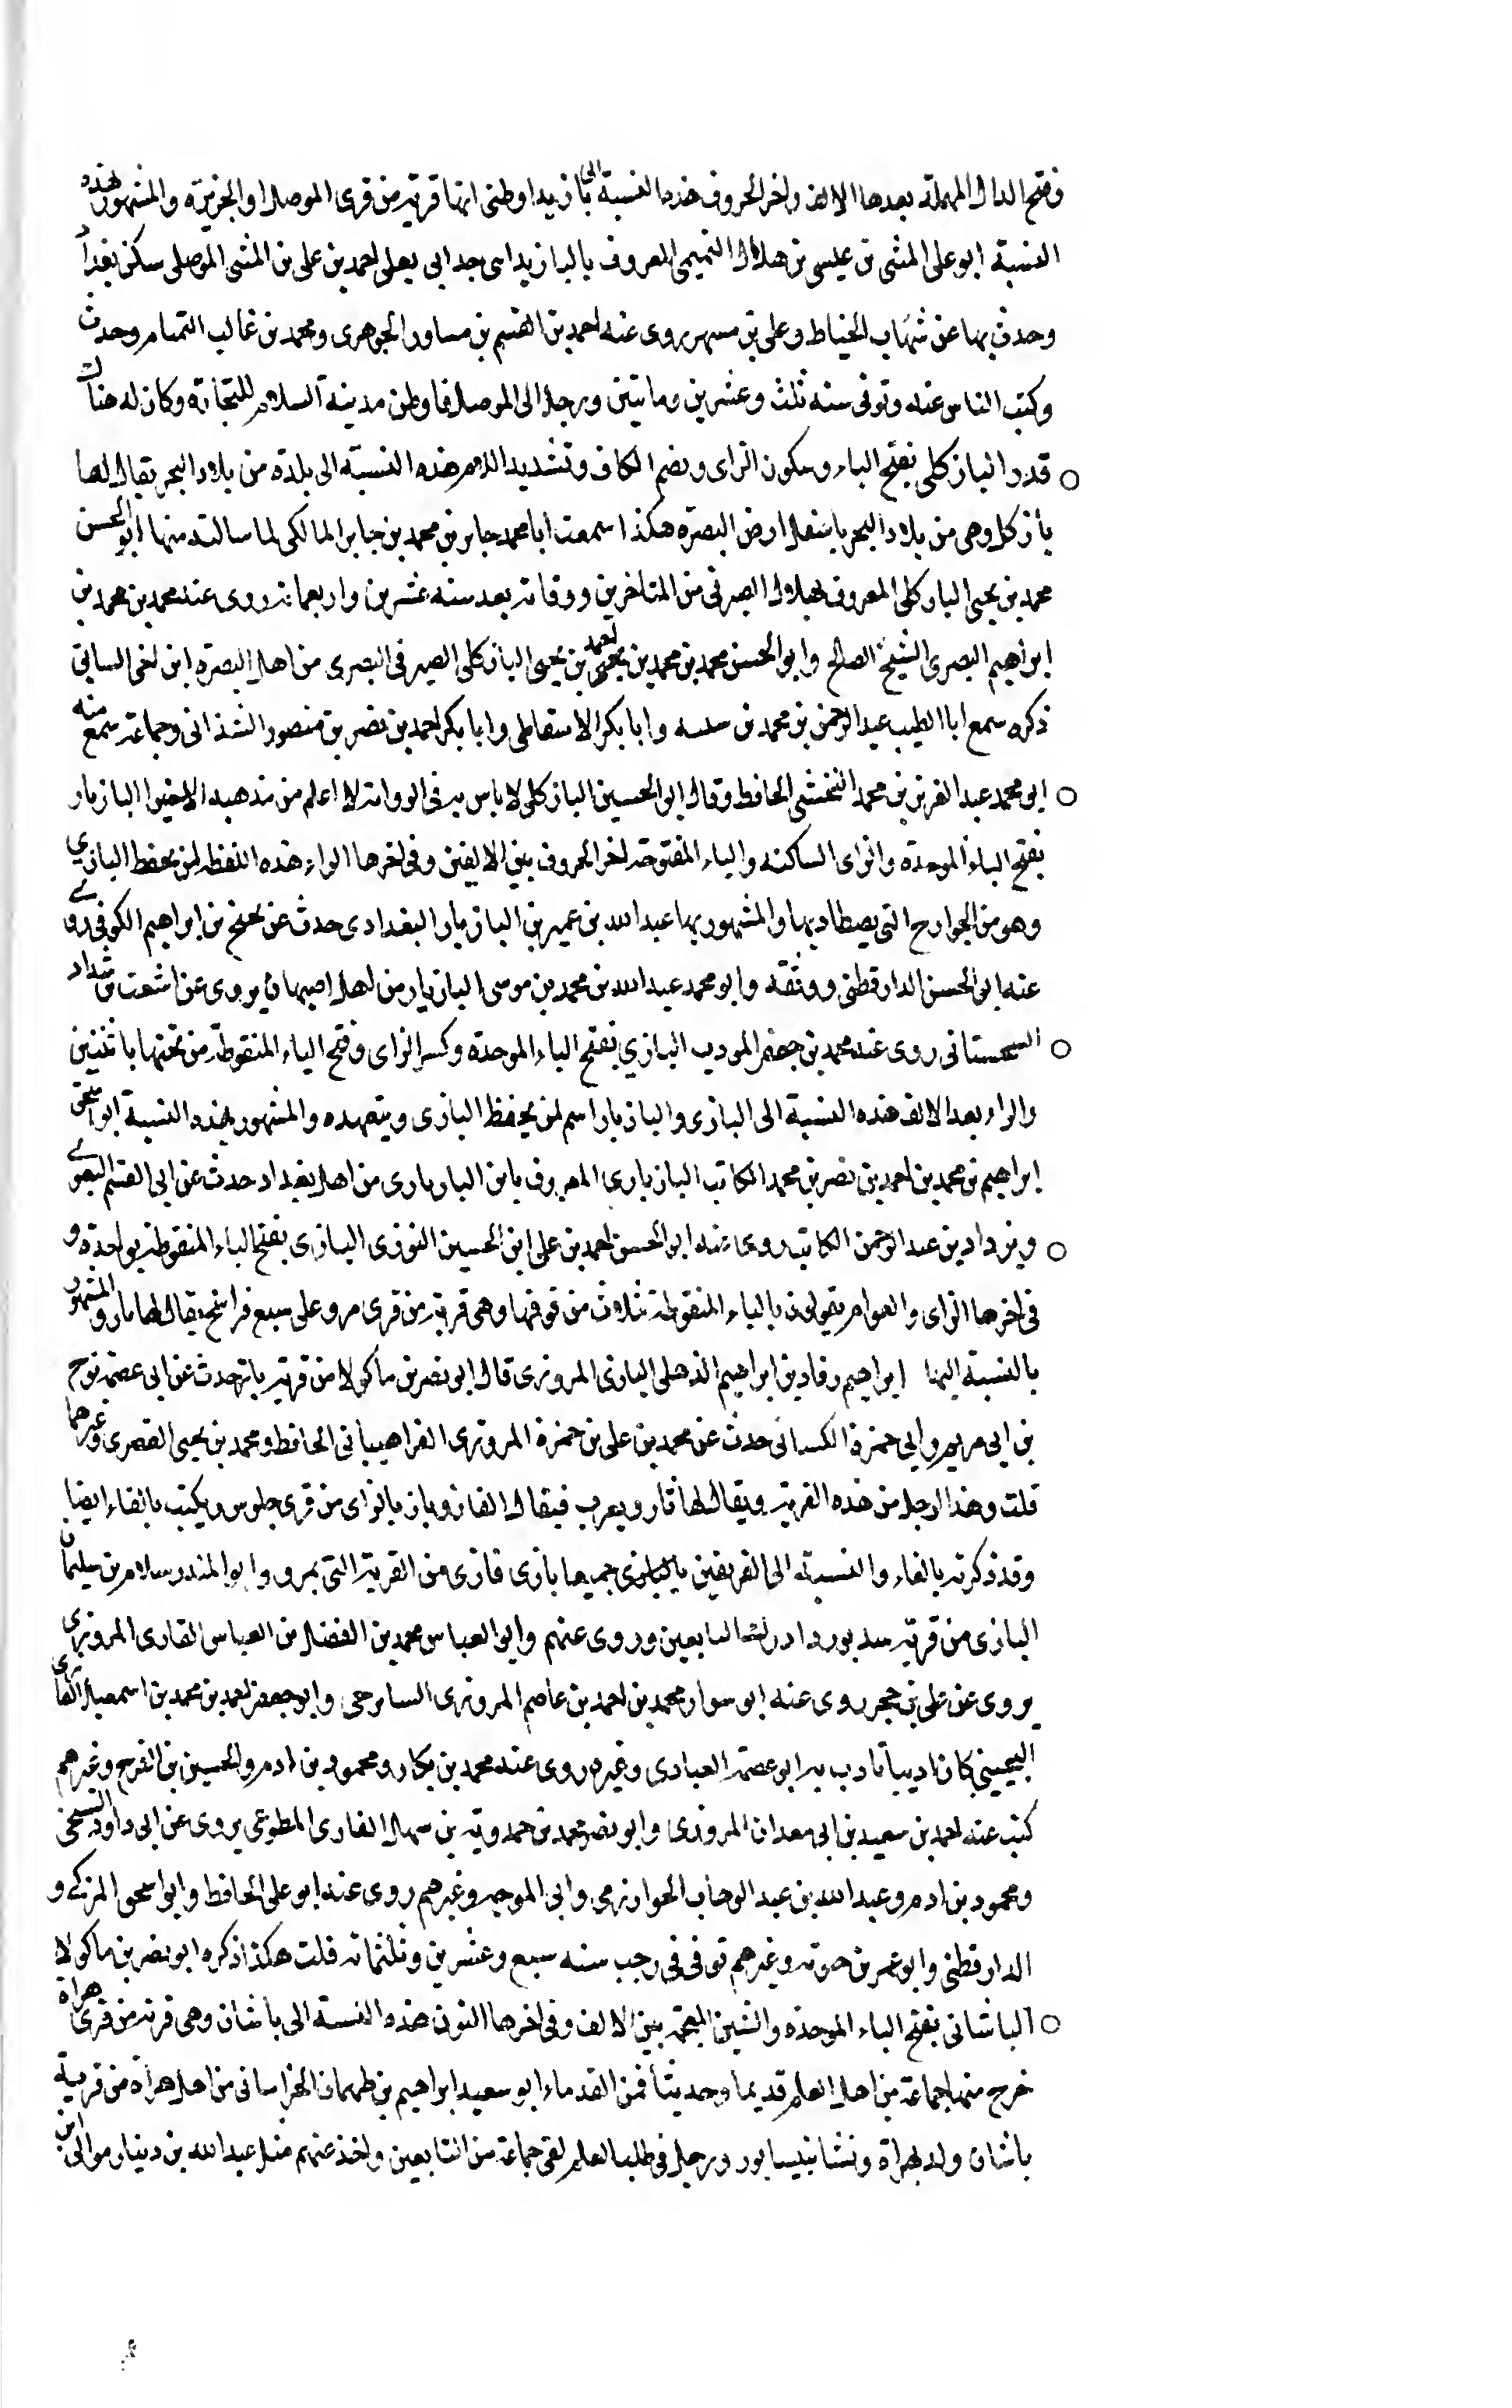 وفتح الدال المهملة بعدها الالف واخر الحروف هذه النسبة الى بازيدا وظنى انها قرية من قرى الموصل او الجزيرة والمشهور بهذه
النسبة ابو على المثنى بن عيسى بن هلال التميمى المعروف بالبازيداى جد ابى يعلى احمد بن على بن المثنى الموصلى سكن بغداد
وحدث بها عن شهاب الخياط وعلى بن مسهر روى عنه احمد بن القسم بن مساور الجوهرى ومحمد بن غالب التمتام وحدث
وكتب الناس عنه وتوفى سنه ثلث وعشرين وماتين ورحل الى الموصل فاوطن مدينة السلام للتجارة وكان له هناك
قدر البازكلى بفتح الباء وسكون الزاى وضم الكاف وتشديد اللام هذه النسبة الى بلدة من بلاد البحر يقال لها
بازكل وهى من بلاد البحر باسفل ارض البصرة هكذا سمعت ابا محمد جابر بن محمد بن جابر المالكى لما سالته منها ابو الحسن
محمد بن يحيى البازكلى المعروف بهلال الصيرفى من المتاخرين ووفاته بعد سنه عشرين واربعماية روى عنه محمد بن محمد بن
ابراهيم البصرى الشيخ الصالح وابو الحسن محمد بن محمد بن احمد بن يحيى البازكلى الصيرفى البصرى من اهل البصرة ابن اخى السابق
ذكره سمع ابا الطيب عبد الرحمن بن محمد بن وابا بكر الاسقاطى وابا بكر احمد بن نصر بن منصور الشذائى وجماعة سمع منه
ابو محمد عبد العزيز بن محمد النخشبى الحافظ وقال ابو الحسين البازكلى لا باس به فى الرواية لا اعلم من مذهبه الا خيرا البازيار
بفتح الباء الموحدة والزاى الساكنة والياء المفتوحة اخر الحروف بين الالفين وفى اخرها الراء هذه اللفظة لمن يحفظ البازى
وهو من الجوارح التى يصطاد بها والمشهور بها عبد الله بن عمير بن البازيار البغدادى حدث عن ابراهيم الكوفى روى
عنه ابو الحسن الدارقطنى ووثقه وابو محمد عبد الله بن محمد بن موسى البازيار من اهل اصبهان يروى عن اشعث بن شداد
السجستانى روى عنه محمد بن جعفر المودب البازيارى بفتح الباء الموحدة وكسر الزاى وفتح الياء المنقوطة من تحتها باثنتين
والراء بعد الالف هذه النسبة الى البازى والبازيار اسم لمن يحفظ البازى ويتعهده والمشهور بهذه النسبة ابو اسحق
ابراهيم بن محمد بن احمد بن نصر بن محمد الكاتب البازيارى المعروف بابن البازيارى من اهل بغداد حدث عن ابى القسم البغوى
ويزداد بن عبد الرحمن الكاتب روى عنه ابو الحسن احمد بن على ابن الحسين التوزى البازى بفتح الباء المنقوطة بواحدة و
فى اخرها الزاى والعوام يقولون بالباء المنقوطة بثلاث من فوقها وهى قرية من قرى مرو على سبع فراسخ يقال لها باز والمشهور
بالنسبة اليها ابراهيم زفاد بن ابراهيم الذهلى البازى المروزى قال ابو نصر بن ماكولا من قرية باز حدث عن ابى عصمة نوح
بن ابى مريم وابى حمزة الكسائى حدث عن محمد بن على بن حمزة المروزى الفراهينانى الحافظ ومحمد بن يحيى القصرى وغيرهما
قلت وهذا الرجل من هذه القرية ويقال لها فاز ويعرب فيقال الفاز وباز بالزاى من قرى طوس ويكتب بالفاء ايضا
وقد ذكرته بالفاء والنسبة الى القريتين جميعا بازى فازى من القرية التى بمرو وابو المنذر سلام بن سليمان
البازى من قرية ادرك التابعين وروى عنهم وابو العباس محمد بن الفضل بن العباس الفازى المروزى
يروى عن على بن حجر روى عنه ابو سوار محمد بن احمد بن عاصم المروزى وابو جعفر احمد بن محمد بن اسمعيل الفازى
كان اديبا تادب به ابو عصمة العبادى وغيره روى عنه محمد بن بكار ومحمود بن ادم والحسين بن الفرج وغيرهم
كتب عنه احمد بن سعيد بن ابى معدان المروزى وابو نصر محمد بن حمدويه بن سهل الفازى المطوعى يروى عن ابى داود السنجى
ومحمود بن ادم وعبد الله بن عبد الوهاب الخوارزمى وابى الموجه وغيرهم روى عنه ابو على الحافظ وابو اسحق المزكى و
الدارقطنى وابو عمر بن حيويه وغيرهم توفى فى رجب سنه سبع وعشرين وثلثماية قلت هكذا ذكره ابو نصر بن ماكولا
الباشانى بفتح الباء الموحدة والشين المعجمة بين الالف وفى اخرها النون هذه النسبة الى باشان وهى قرية من قرى هراة
خرج منها جماعة من اهل العلم قديما وحديثا فمن القدماء ابو سعيد ابراهيم بن طهمان الخراسانى من اهل هراة من قرية
باشان ولد بهراة ونشا بنيسابور ورحل فى طلب العلم لقى جماعة من التابعين واخذ عنهم مثل عبد الله بن دينار مولى ابن